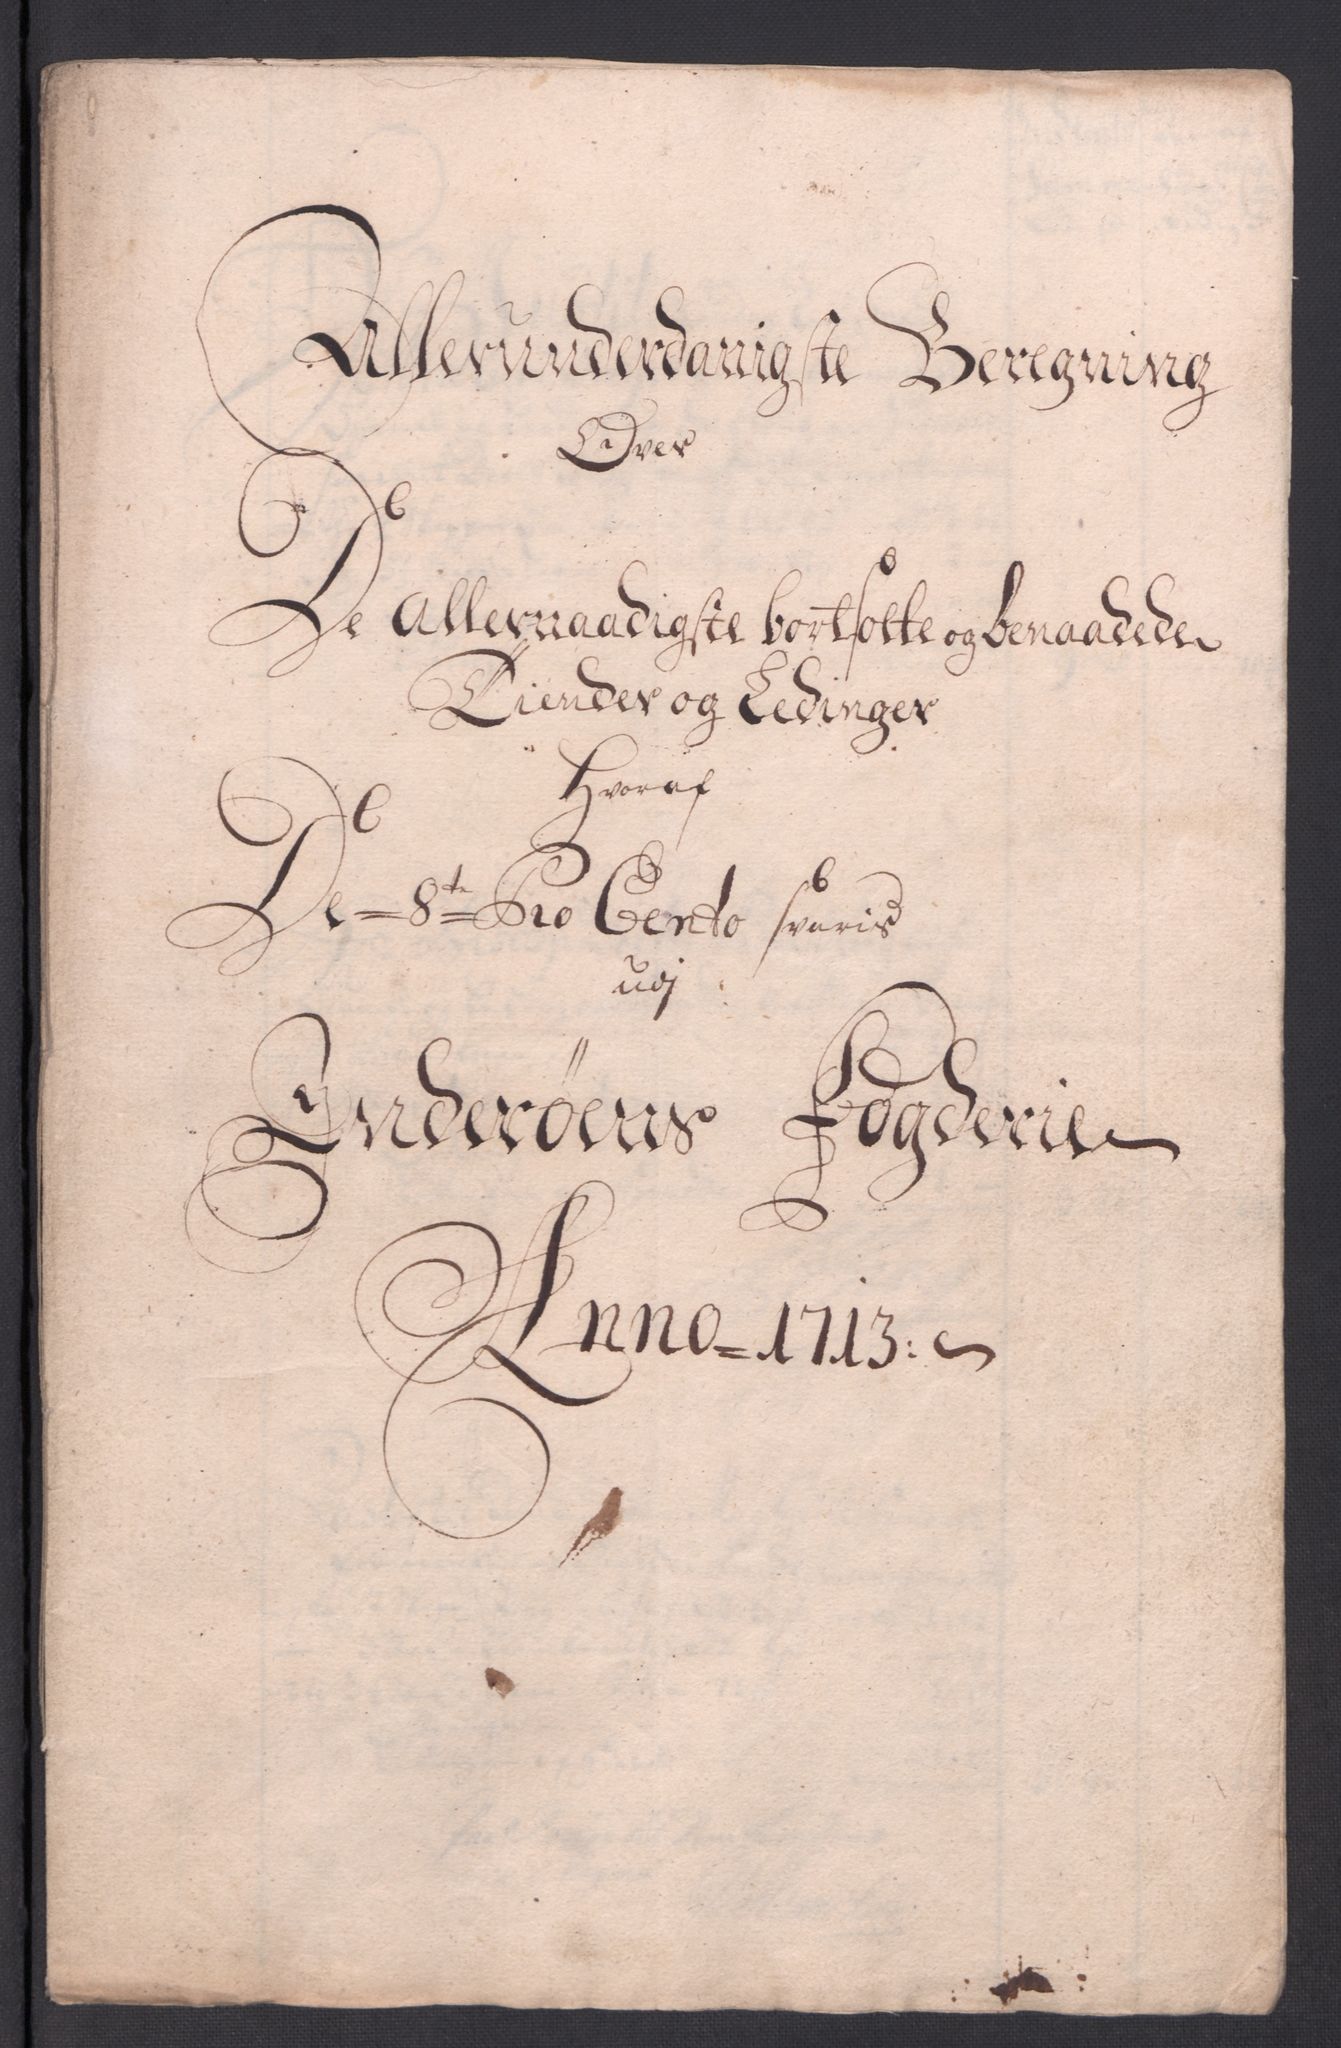 Allerunderdanigste Beregning
Over
De allernaadigste bortsolte og benaadede
Tiender og Ledinger
Hvoraf
De = 8te = Pro Cento svaris
udj
Inderøens Fogderie
Anno = 1713: